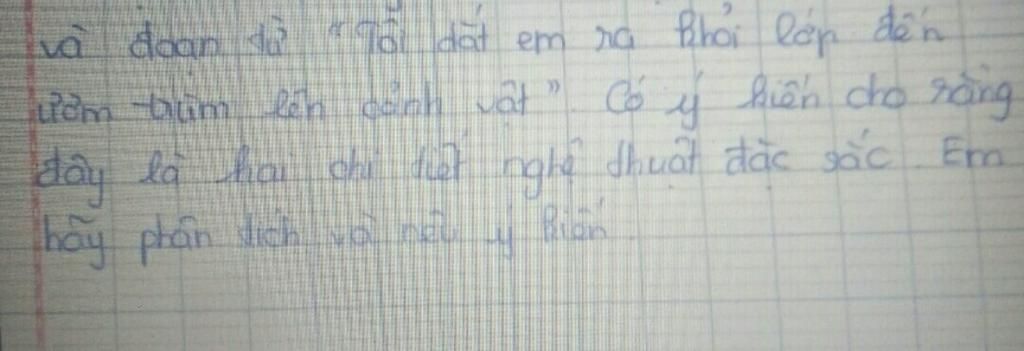 và đoạn từ "Tôi dắt em ra khỏi lớp đến
ươm trùm lên cảnh vật". Có ý kiến cho rằng
đây là hai chi tiết nghệ thuật đặc sắc. Em
hãy phân tích và nêu ý kiến